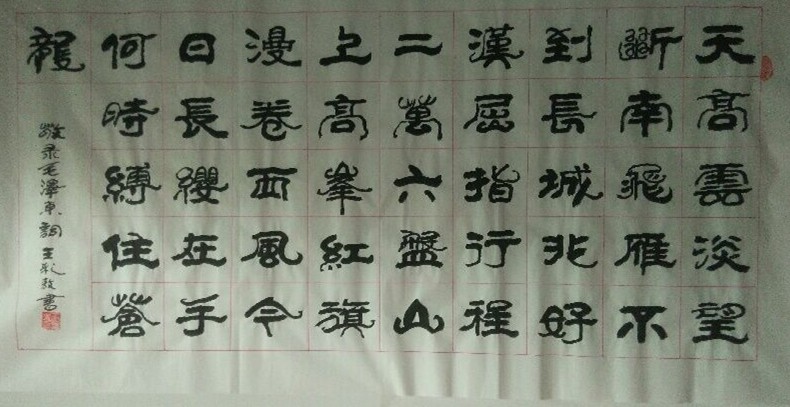 天高雲淡望
斷南飛雁不
到長城非好
漢屈指行程
二萬六盤山
上高峯紅旗
漫卷西風今
日長纓在手
何時縛住蒼
龍
敬录毛澤東詞 王政書